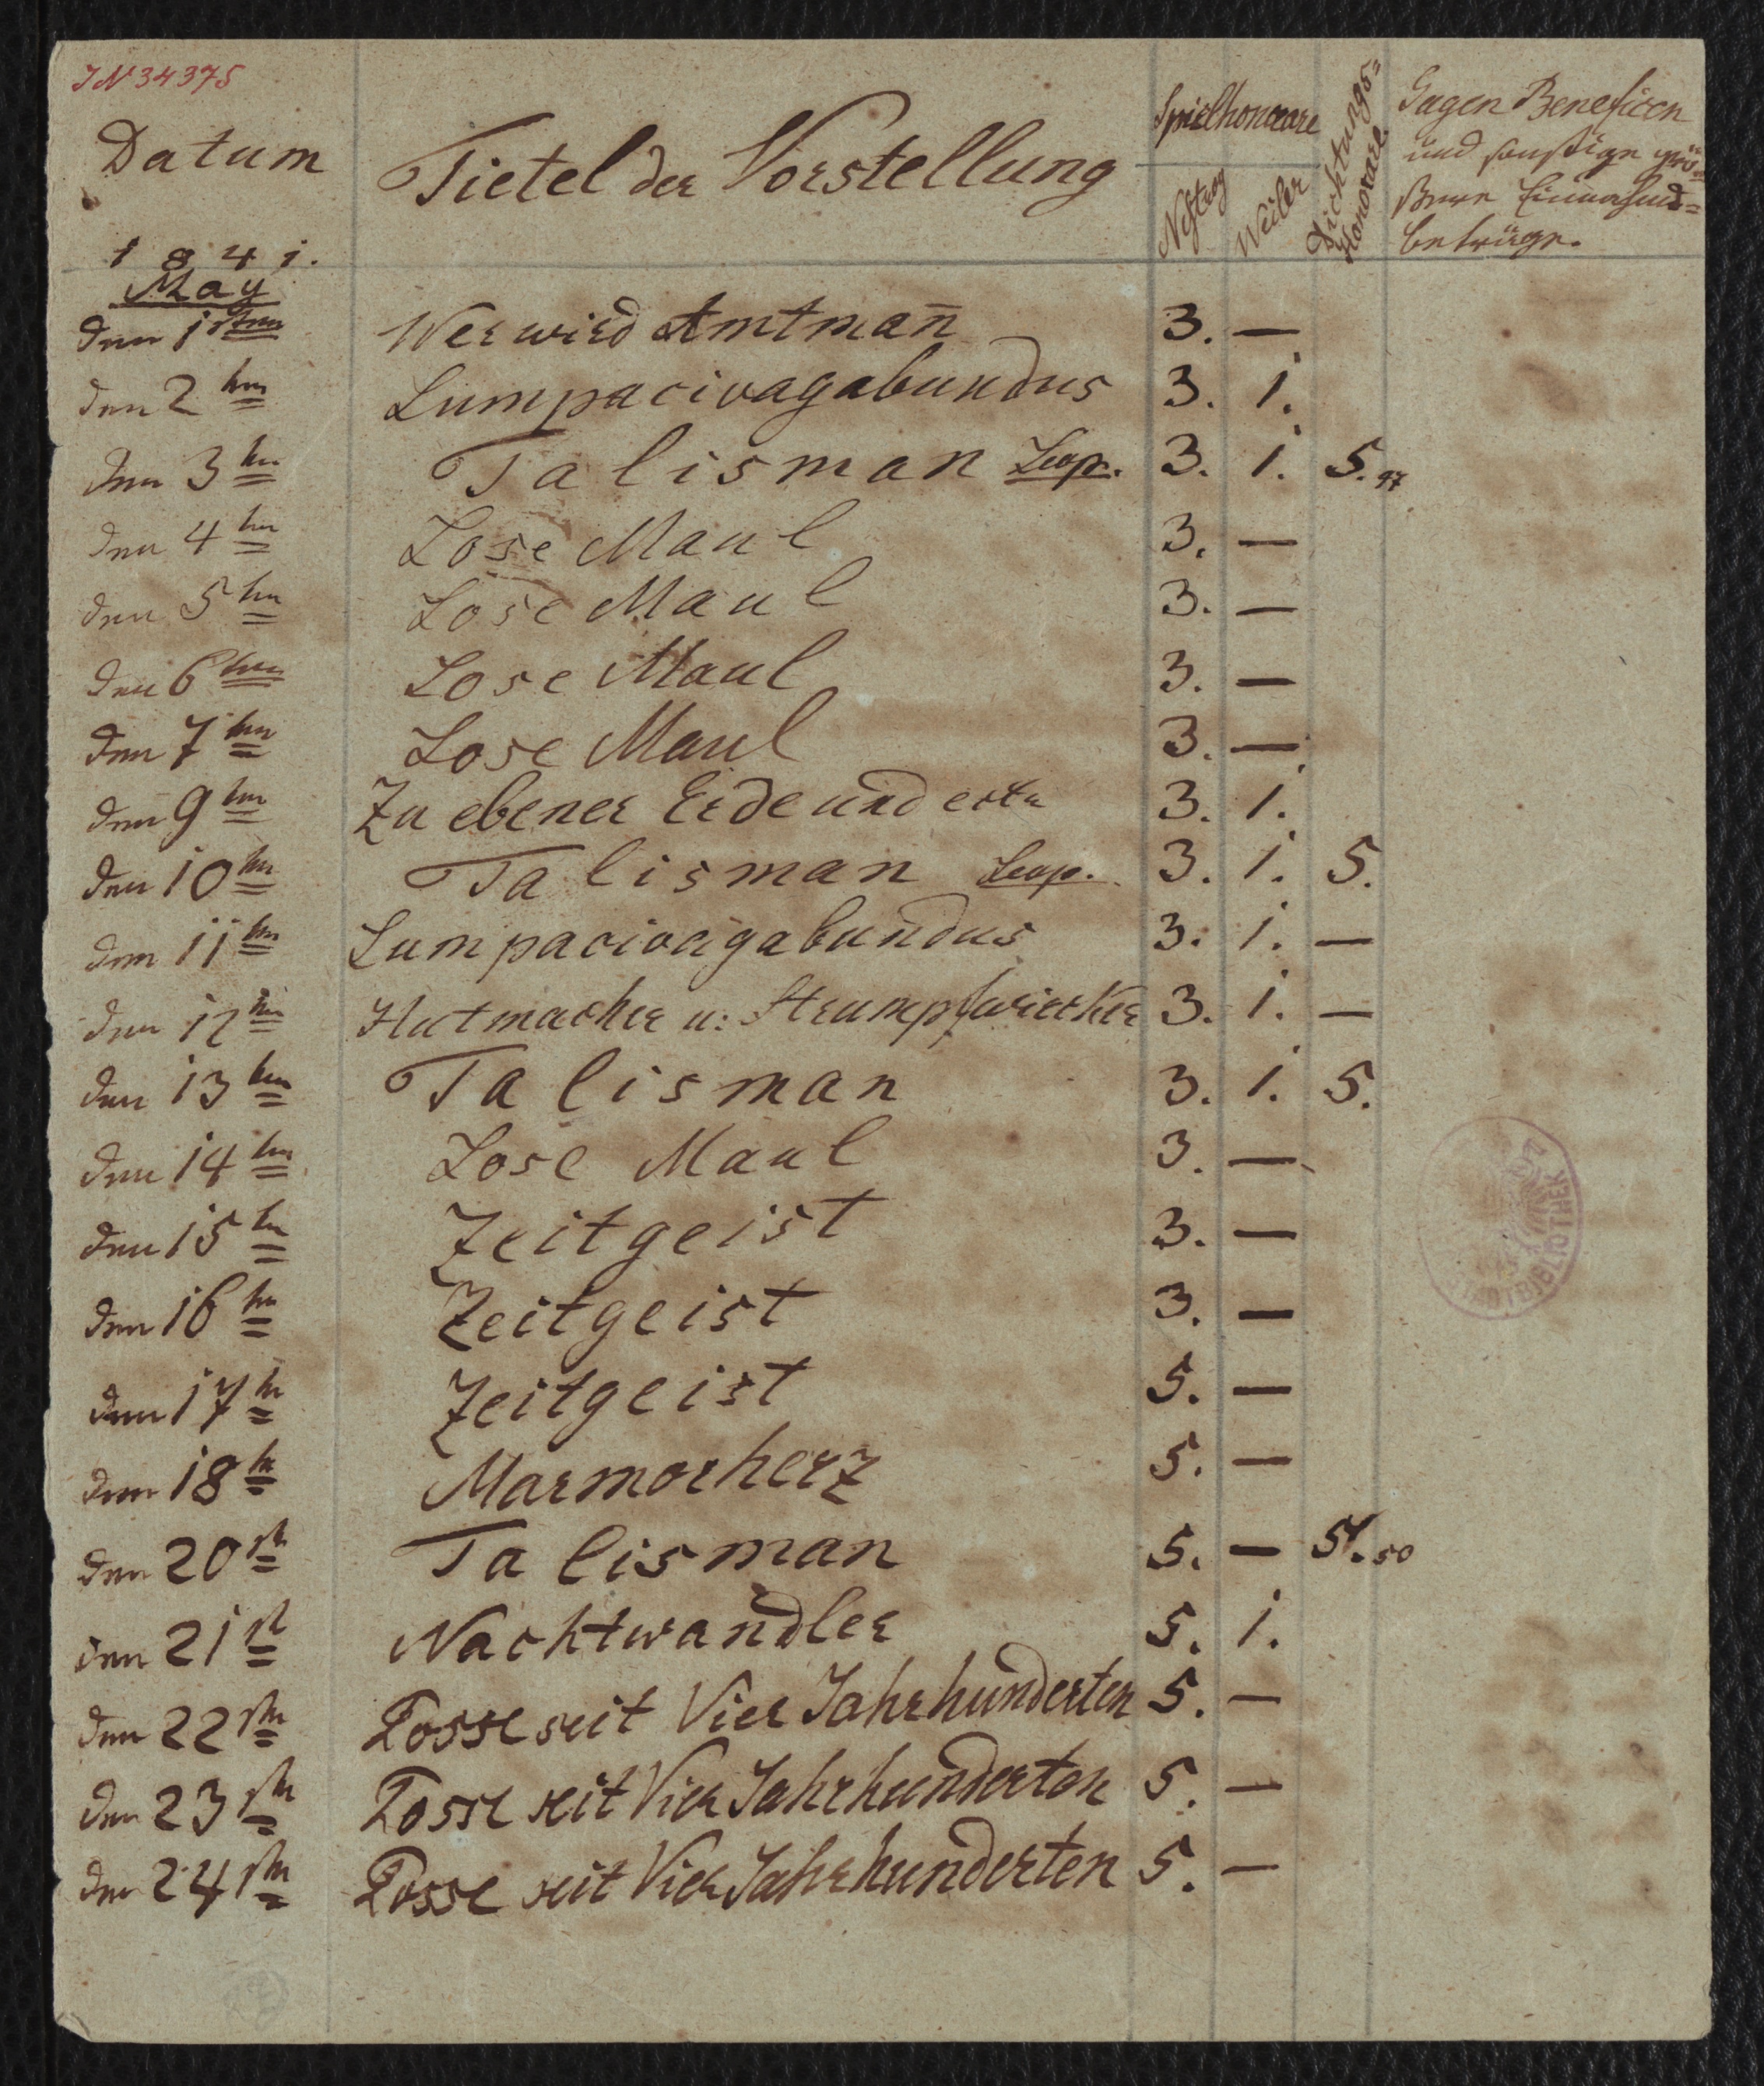 JN 34375
Datum
Tietel der Vorstellung
Spielhonorare
Nestroy
Weiler
Dichtungs=
Honorare
Gagen Beneficen
und sonstige grö=
ßere Einnahms=
beträge.
1841.
May
den 1sten Wer wird Amtman̄ 3. —
den 2ten Lumpacivagabundus 3. 1.
den 3ten Talisman Leop. 3. 1. 5.
den 4ten Lose Maul 3. —
den 5ten Lose Maul 3. —
den 6ten Lose Maul 3. —
den 7ten Lose Maul 3. —
den 9ten Zu ebener Erde und erste 3. 1.
den 10ten Talisman Leop. 3. 1. 5.
den 11ten Lumpacivagabundus 3. 1. —
den 12ten Hutmacher u: Strumpfwircker 3. 1. —
den 13ten Talisman 3. 1. 5.
den 14ten Lose Maul 3. —
den 15ten Zeitgeist 3. —
den 16ten Zeitgeist 3. —
den 17tn Zeitgeist 5. —
den 18tn Marmorherz 5. —
den 20stn Talisman 5. — 51.50
den 21st Nachtwandler 5. 1.
den 22stn Posse seit Vier Jahrhunderten 5. —
den 23stn Posse seit Vier Jahrhunderten 5. —
den 24stn Posse seit Vier Jahrhunderten 5. —
STADTBIBLIOTHEK